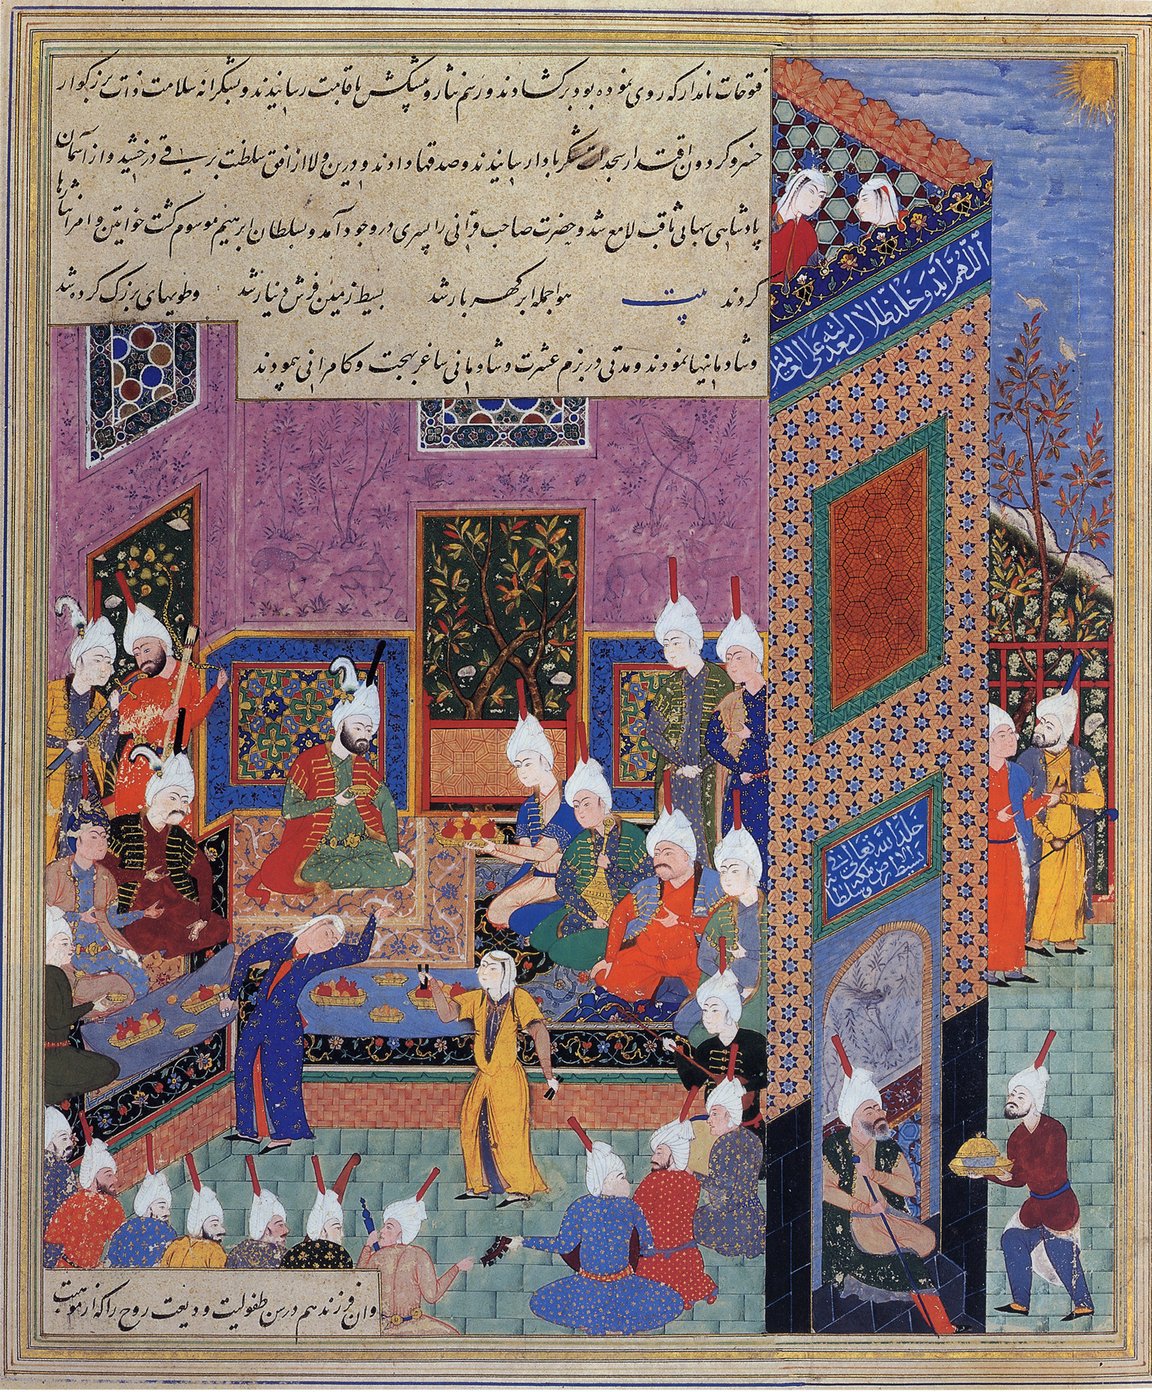 فتوحات نامدار که روی نموده بود برگشادند و رسم نثار و پیشکش باقامت رسانیدند و بشکرانه سلامت ذات بزرگوار
خسرو گردون اقتدار سجدات شکر باد ارسانیدند و صدقها دادند و درین ولا از افق سلطنت برقی درخشید و از آسمان
پادشاهی شهابی ثاقب لامع شد و حضرت صاحب قرانی را پسری در وجود آمد و بسلطان ابرهیم موسوم گشت خواتین و امرا نثارها
کردند بیت هوا جمله ابر گهربار شد بسیط زمین فرش دینار شد و طویهای بزرک کرده شد
و شادمانیها نمودند و مدتی در بزم عشرت و شادمانی ساغر بهجت و کامرانی پیمودند
اللهم ابد و خلد ظلال
خلد الله تعالی
وان فرزند هم در سن طفولیت ودیعت روح را که از موهبت